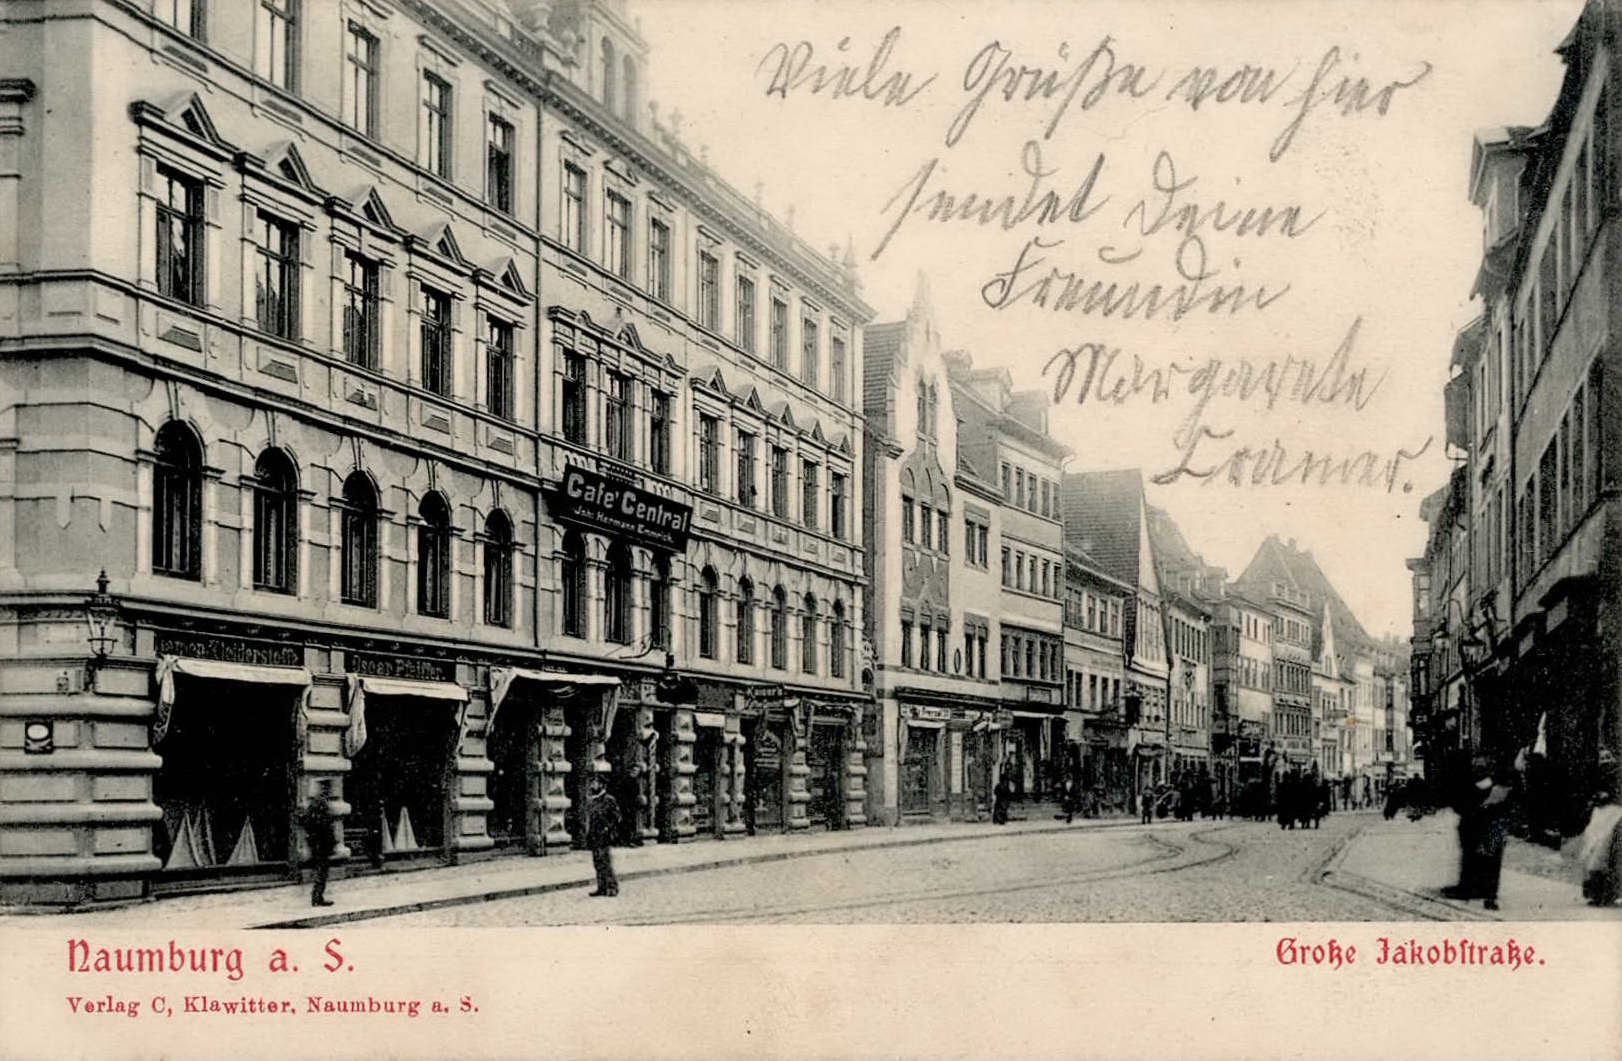 Viele Grüße von hier
sendet Deine
Freundin
Margarete
Cramer.
Café Central
Joh. Hermann Emmrich
Kleiderstoffe
Oscar Pfeiffer
Kaiser's
Naumburg a. S.
Große Jakobstraße.
Verlag C, Klawitter, Naumburg a. S.